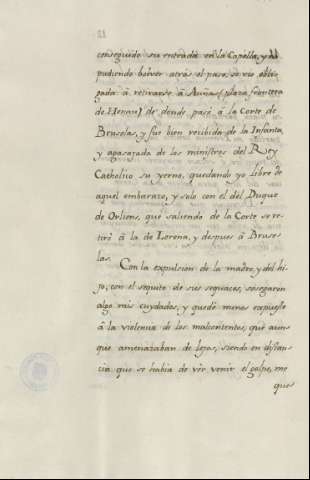 21
conseguido su entrada en la Capella, y no
pudiendo bolver atrás el paso, se vio obli-
gada à retirarse à (plaza frontera
de Henau) de donde pasó à la Corte de
Bruselas, y fue bien recibida de la Infanta,
y agasajada de los ministros del Rey
Catholico su yerno, quedando yo libre de
aquel embarazo, y solo con el del Duque
de Orliens, que saliendo de la Corte se re-
tiró à la de Lorena, y despues à Bruse-
las.
Con la expulsion de la madre, y del hi-
jo, con el sequito de sus sequaces, sosegaron
algo mis cuydados, y quedé menos expuesto
à la violencia de los malcontentos, que aun-
que amenazaban de lejos, siendo en distan-
cia que se habia de vér venir el golpe, me
que